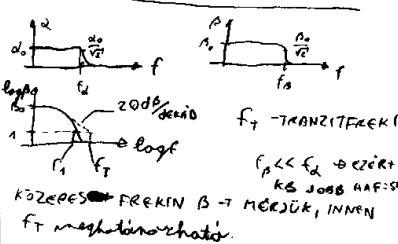 α
α₀
α₀/√2
f
f_α
β
β₀
β₀/√2
f
f_β
logβ
β₀
20dB/DEKÁD
1
f₁
f_T
logf
f_T -TRANZITFREKI
f_β << f_α → EZÉRT
KB JOBB
KÖZEPES FREKIN β-T MÉRJÜK, INNEN
f_T meghatározható.